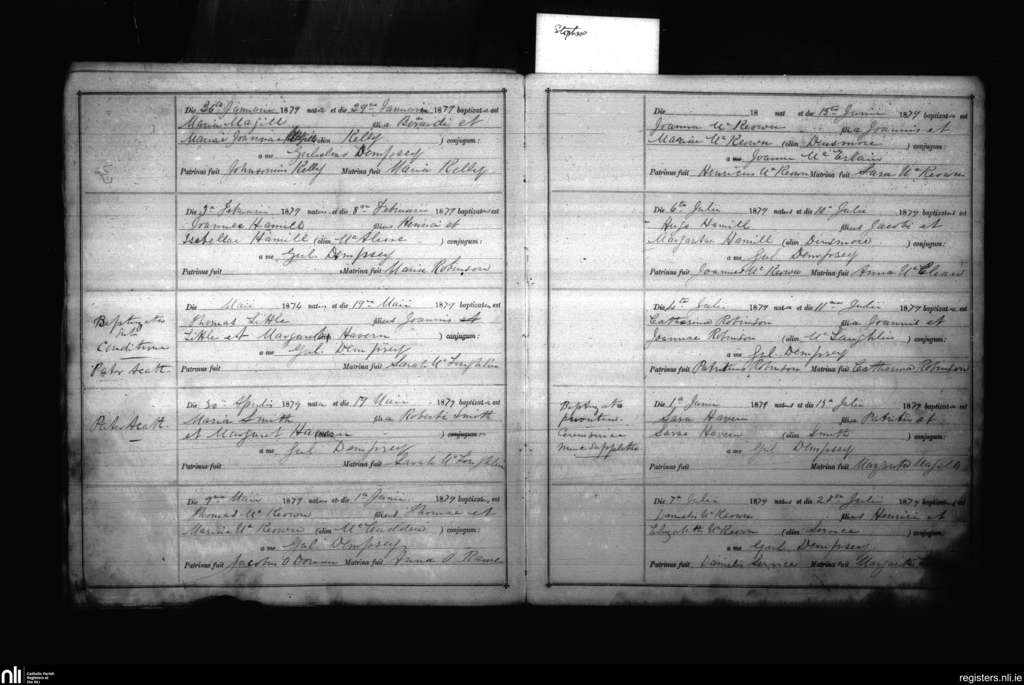 Stephen
Die 26a Januarii 1879 nata et die 29na Januarii 1879 baptizata est
Maria Magill filia Bernardi et
Mariae Joannae Magill (olim Kelly ) conjugum:
a me Gulielmo Dempsey
Patrinus fuit Kelly Matrina fuit Maria Kelly
Die 3a Februarii 1879 natus et die 8va Februarii 1879 baptizatus est
Joannes Hamill filius Henrici et
Isabellae Hamill (olim ) conjugum:
a me Gul. Dempsey
Patrinus fuit Matrina fuit Maria Robinson
Baptizatus
sub
Conditione
Pater Acath.
Die Maii 1874 natus et die 17ma Maii 1879 baptizatus est
Thomas Little filius Joannis et
Little et Margaret Havern ) conjugum:
a me Gul. Dempsey
Patrinus fuit Matrina fuit Sarah McLoughlin
Pater Acath.
Die 30a Aprilis 1879 nata et die 17 Maii 1879 baptizata est
Maria Smith filia Roberti Smith
et Margaret Havern ) conjugum:
a me Gul Dempsey
Patrinus fuit Matrina fuit Sarah McLoughlin
Die 9na Maii 1879 natus et die 1a Junii 1879 baptizatus est
Thomas McKeown filius Thomae et
Mariae McKeown (olim McCudden ) conjugum:
a me Gul. Dempsey
Patrinus fuit Jacobus O Matrina fuit Anna O
Die 18 nat et die 15ta Junii 1879 baptizata est
Joanna McKeown filia Joannis et
Mariae McKeown (olim Densmore ) conjugum:
a me Joanne McErlain
Patrinus fuit Henricus McKeown Matrina fuit Sara McKeown
Die 6ta Julii 1879 natus et die 10a Julii 1879 baptizatus est
Hugo Hamill filius Jacobi et
Margaritae Hamill (olim Densmore ) conjugum:
a me Gul Dempsey
Patrinus fuit Joannes McKeown Matrina fuit Anna McClean
Die 4ta Julii 1879 nata et die 11ma Julii 1879 baptizata est
Catharina Robinson filia Joannis et
Joannae Robinson (olim McLaughlin ) conjugum:
a me Gul. Dempsey
Patrinus fuit Patritius Robinson Matrina fuit Catharina Robinson
Baptizata
privatim
Ceremoniae
nunc suppletae
Die 1a Junii 1879 nata et die 13a Julii 1879 baptizata est
Sara Haven filia Patritii et
Sarae Haven (olim Smith ) conjugum:
a me Gul Dempsey
Patrinus fuit Matrina fuit Margarita Magill
Die 7a Julii 1879 natus et die 28va Julii 1879 baptizatus est
Daniel McKeown filius Henrici et
Elizabeth McKeown (olim Service ) conjugum:
a me Gul Dempsey
Patrinus fuit Daniel Service Matrina fuit Margarita
nli
Catholic Parish
Registers at
the NLI
registers.nli.ie